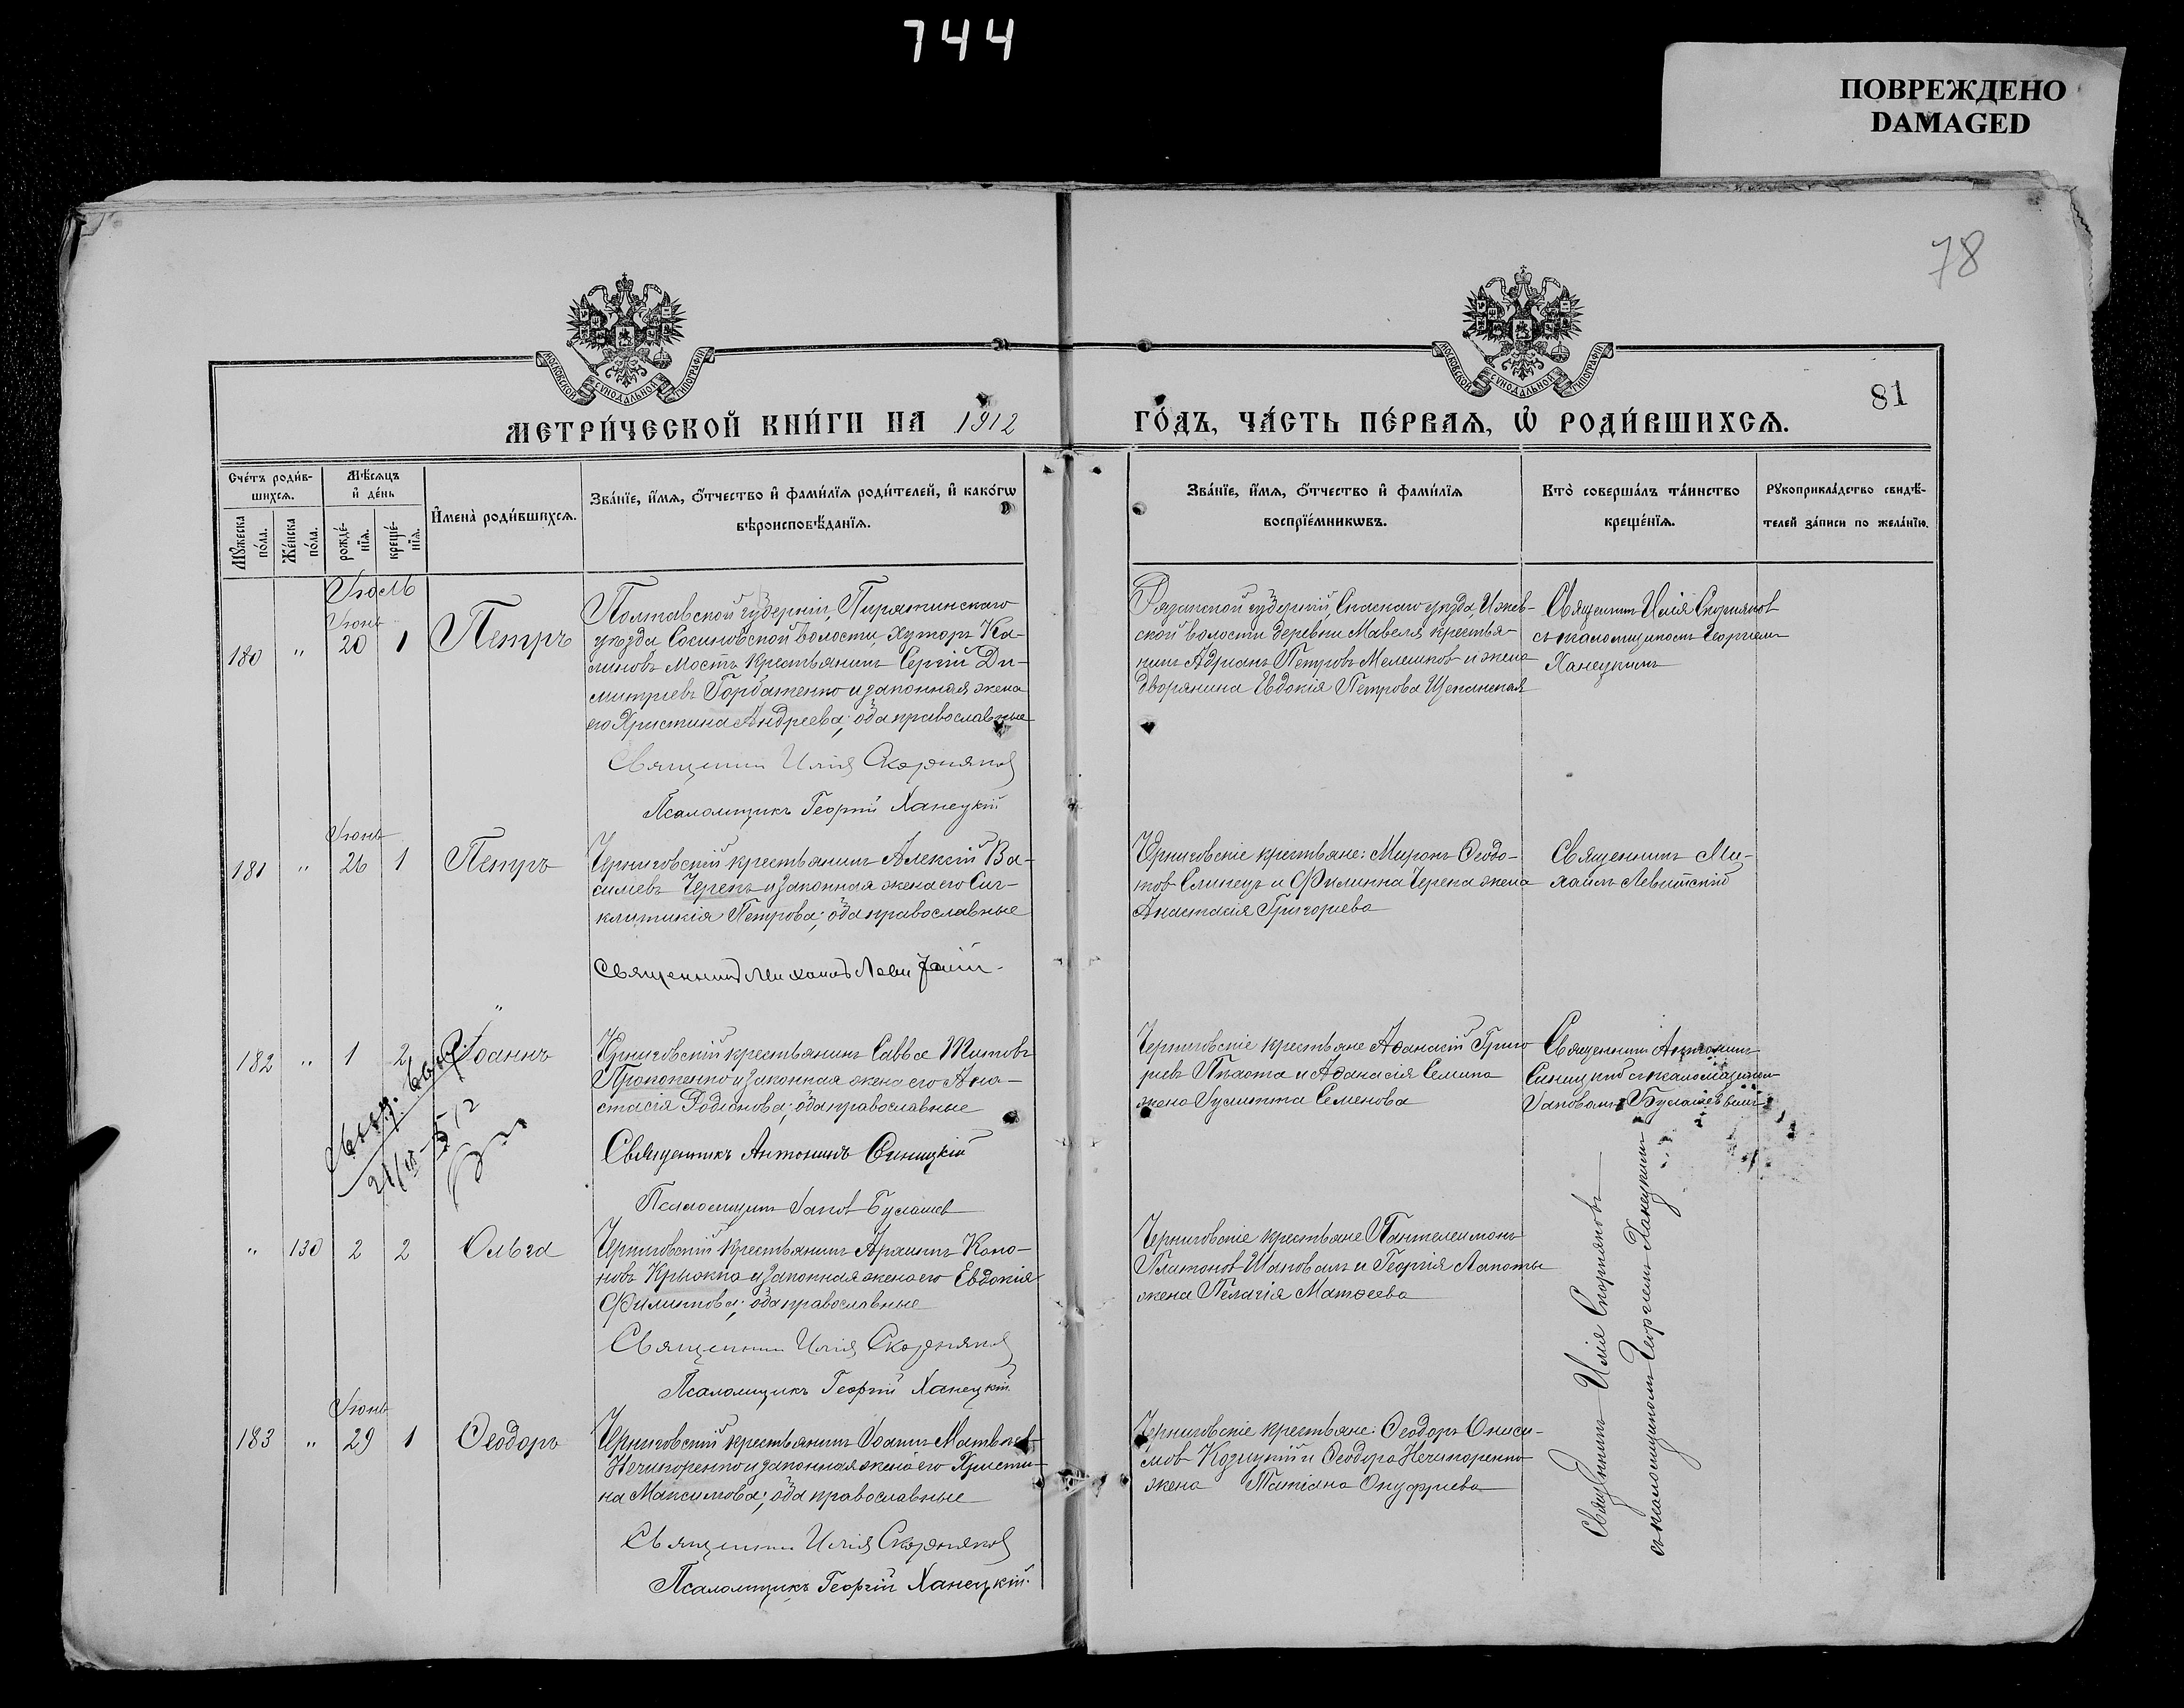 744
ПОВРЕЖДЕНО
DAMAGED
78
81
МОСКОВСКОЙ СУНОДАЛЬНОЙ ТИПОГРАФІИ
МОСКОВСКОЙ СУНОДАЛЬНОЙ ТИПОГРАФІИ
МЕТРИ́ЧЕСКОЙ КНИ́ГИ НА 1912
ГО́ДЪ, ЧА́СТЬ ПЕ́РВАѦ, Ѽ РОДИ́ВШИХСѦ.
Сче́тъ роди́в-
шихсѧ.
Мꙋ́жеска по́ла.
Же́нска по́ла.
Мѣ́сѧцъ
и҆ де́нь
рожде́-
нїѧ.
креще́-
нїѧ.
И҆мена̀ роди́вшихсѧ.
Зва́нїе, и҆́мѧ, ѻ҆́тчество и҆ фами́лїѧ роди́телей, и҆ како́гѡ
вѣроисповѣ́данїѧ.
Зва́нїе, и҆́мѧ, ѻ҆́тчество и҆ фами́лїѧ
воспрїе́мникѡвъ.
Кто̀ соверша́лъ та́инство
креще́нїѧ.
Рꙋкоприкла́дство свидѣ́-
телей за́писи по жела́нїю.
Іюль
Іюнь
180 " 20 1 Петръ
Полтавской губерніи, Пирятинскаго
уѣзда Сасиновской волости, хуторъ Ка-
линовъ Мостъ крестьянинъ Сергій Ди-
митріевъ Горбатенко и законная жена
его Христина Андреева; оба православные
Священникъ Илія Скорняковъ
Псаломщикъ Георгій Ханецкій
Рязанской губерніи, Спаскаго уѣзда, Ижев-
ской волости деревни Мавеля крестья-
нинъ Адріанъ Петровъ Мелешковъ и жена
дворянина Евдокія Петрова Щепанская
Священникъ Илія Скорняковъ
съ псаломщикомъ Георгіемъ
Ханецкимъ
Іюнь
181 " 26 1 Петръ
Черниговскій крестьянинъ Алексій Ва-
силіевъ Черепъ и законная жена его Син-
клитикія Петрова; оба православные
Священникъ Михаилъ Левитскій
Черниговскіе крестьяне: Миронъ Ѳеодо-
товъ Слинецъ и Филиппа Черепа жена
Анастасія Григорьева
Священникъ Ми-
хаилъ Левитскій
182 " 1 2 Іоаннъ
Черниговскій крестьянинъ Савва Титовъ
Прокопенко и законная жена его Ана-
стасія Родіонова; оба православные
Священникъ Антонинъ Синицкій
Псаломщикъ Іаковъ Булашев
Черниговскіе крестьяне Аѳанасій Григо
рьевъ и Аѳанасія Семина
жена Іулитта Семенова
Священникъ Антонинъ
Синицкій съ псаломщикомъ
Іаковомъ Булашевымъ
" 130 2 2 Ольга
Черниговскій крестьянинъ Архипъ Коно-
новъ Крыжка и законная жена его Евдокія
Филиппова; оба православные
Священникъ Илія Скорняковъ
Псаломщикъ Георгій Ханецкій
Черниговскіе крестьяне Пантелеимонъ
Платоновъ Шаповалъ и Георгія Лапоты
жена Пелагія Матѳеева
Іюнь
183 " 29 1 Ѳеодоръ
Черниговскій крестьянинъ Іоаннъ Матѳеевъ
Нечипоренко и законная жена его Христи-
на Максимова; оба православные
Священникъ Илія Скорняковъ
Псаломщикъ Георгій Ханецкій
Черниговскіе крестьяне: Ѳеодоръ Ониси-
мовъ Козицкій и Ѳеодора Нечипоренко
жена Татіана Онуфріева
Священникъ Илія Скорняковъ
съ псаломщикомъ Георгіемъ Ханецкимъ